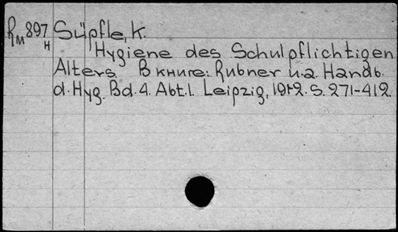 RM 897 H Süpfle, K.
Hygiene des Schulpflichtigen
Alters В книге: Rubner u. a. Handb.
d. Hyg. Bd. 4. Abt. 1. Leipzig, 1912. S. 271-412.